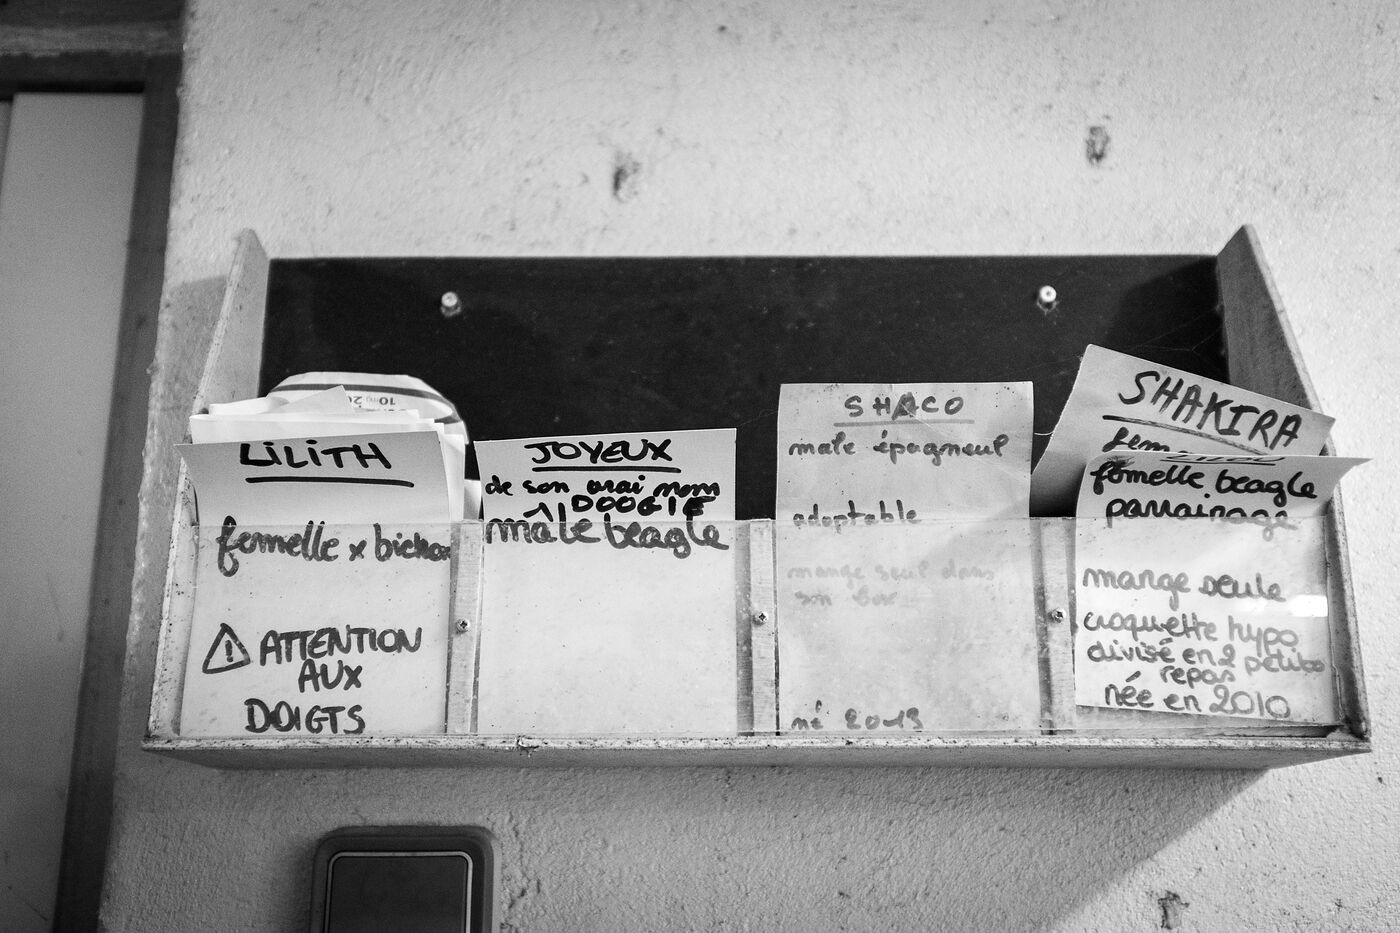 10mg
LILITH
femelle x bichon
ATTENTION
AUX
DOIGTS
JOYEUX
de son vrai nom
DOOGIE
male beagle
SHACO
male épagneul
adoptable
mange seul dans
son box
né 2013
SHAKIRA
fem
femelle beagle
parrainage
mange seule
croquette hypo
divisé en 2 petits
repas
née en 2010